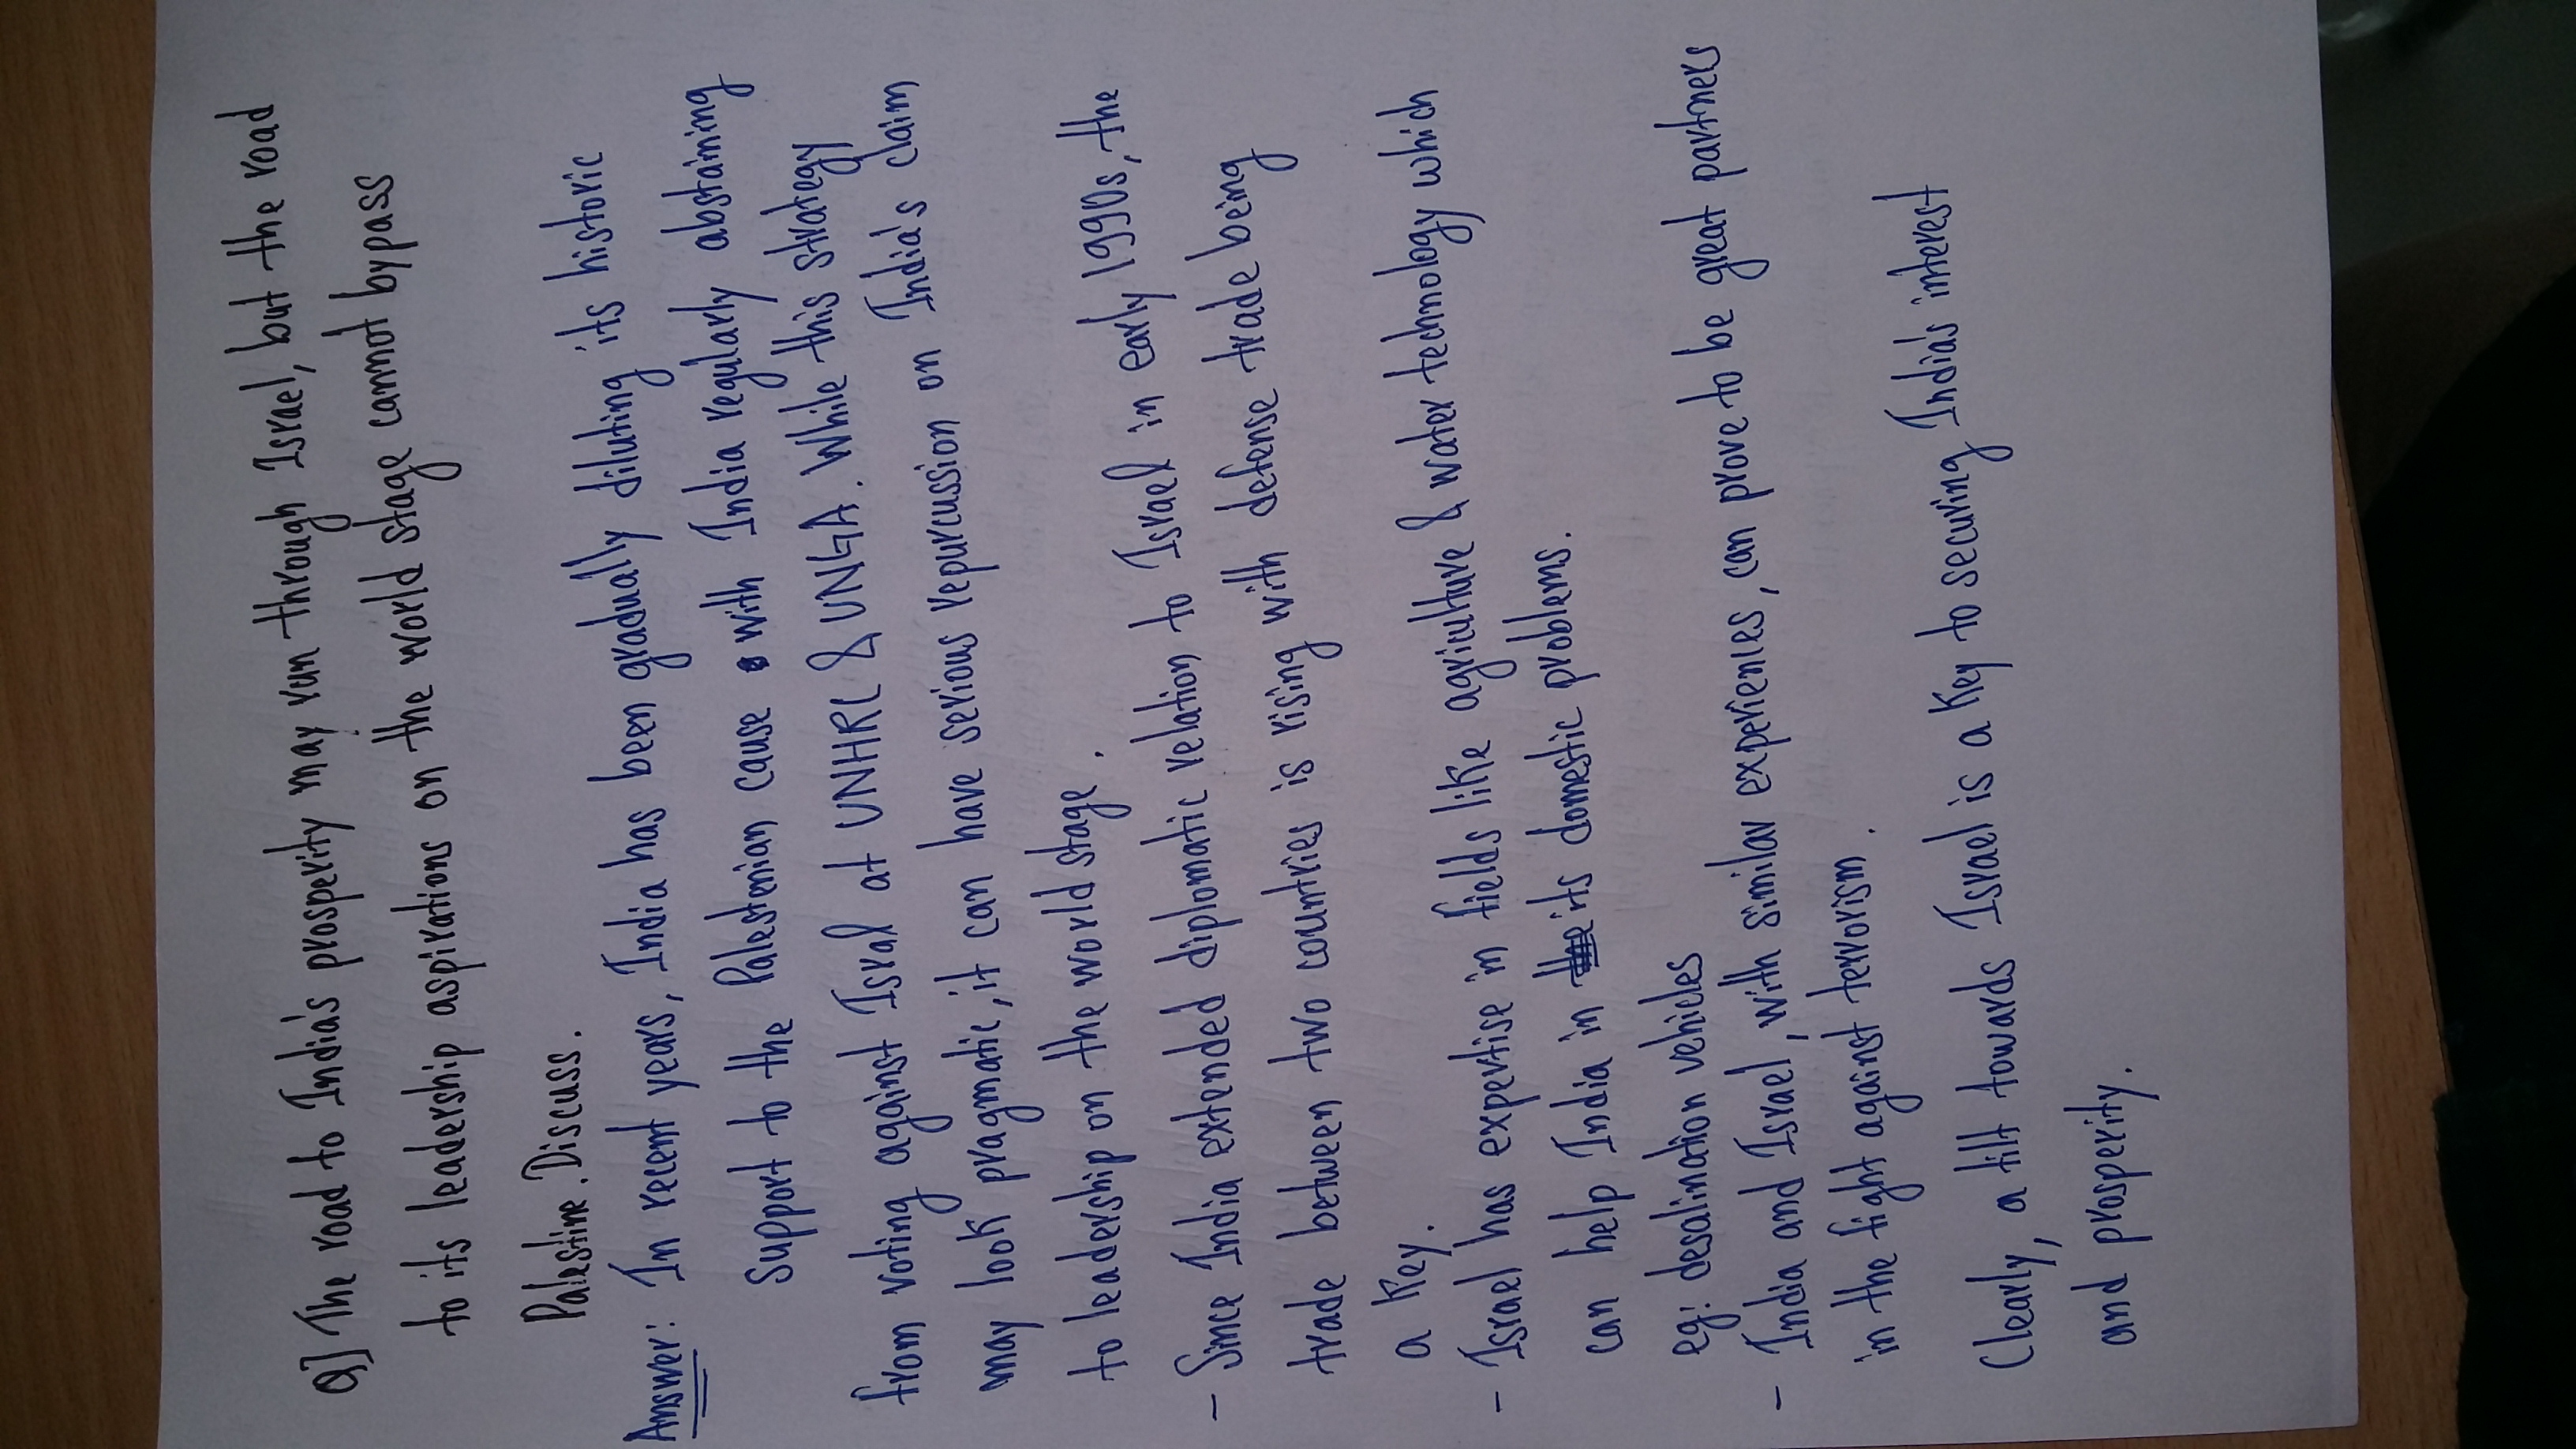 Q] The road to India's prosperity may run through Israel, but the road
to its leadership aspirations on the world stage cannot bypass
Palestine. Discuss.
Answer: In recent years, India has been gradually diluting its historic
support to the Palestenian cause with India regularly abstaining
from voting against Isral at UNHRC & UNGA. While this strategy
may look pragmatic, it can have serious repurcussion on India's claim
to leadership on the world stage.
- Since India extended diplomatic relation to Israel in early 1990s, the
trade between two countries is rising with defense trade being
a key.
- Israel has expertise in fields like agriculture & water technology which
can help India in the its domestic problems.
eg: desalination vehicles
- India and Israel, with similar experiences, can prove to be great partners
in the fight against terrorism.
Clearly, a tilt towards Israel is a key to securing India's interest
and prosperity.